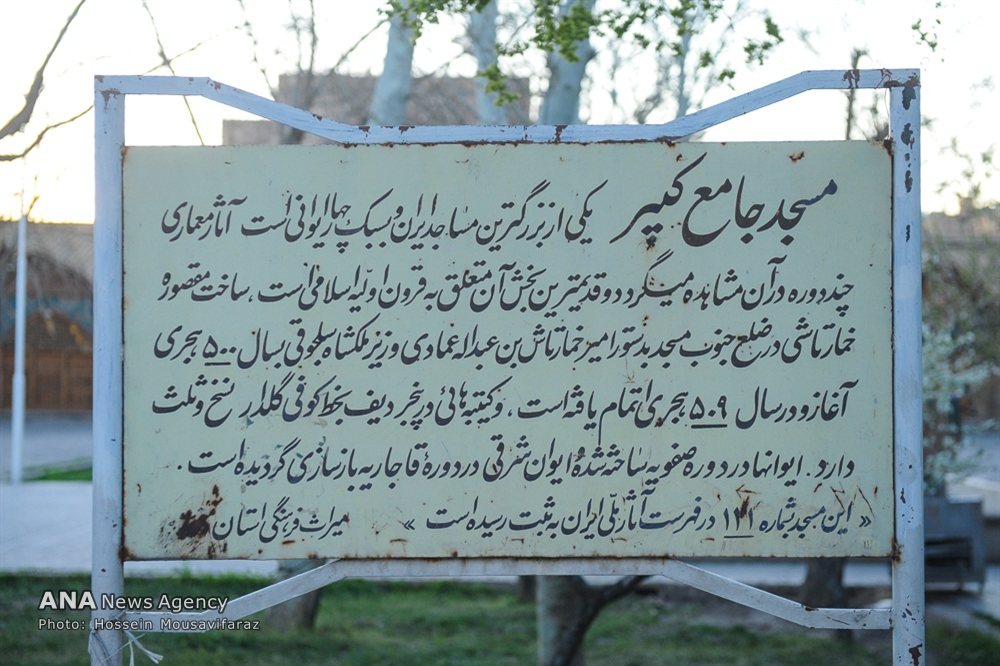 مسجد جامع کبیر یکی از بزرگترین مساجد ایران و بسبک چهار ایوانی است آثار معماری
چند دوره در آن مشاهده میگردد و قدیمترین بخش آن متعلق به قرون اولیه اسلامی است ، ساخت مقصوره
خمارتاشی در ضلع جنوب مسجد بدستور امیر خمارتاش بن عبداله عمادی وزیر ملکشاه سلجوقی بسال ۵۰۰ هجری
آغاز و در سال ۵۰۹ هجری اتمام یافته است ، و کتیبه هائی در پنجردیف بخط کوفی گلدار نسخ و ثلث
دارد . ایوانها در دوره صفویه ساخته شده ایوان شرقی در دورهٔ قاجاریه بازسازی گردیده است .
« این مسجد شماره ۱۲۱ در فهرست آثار ملی ایران به ثبت رسیده است » میراث فرهنگی استان
ANA News Agency
Photo: Hossein Mousavifaraz